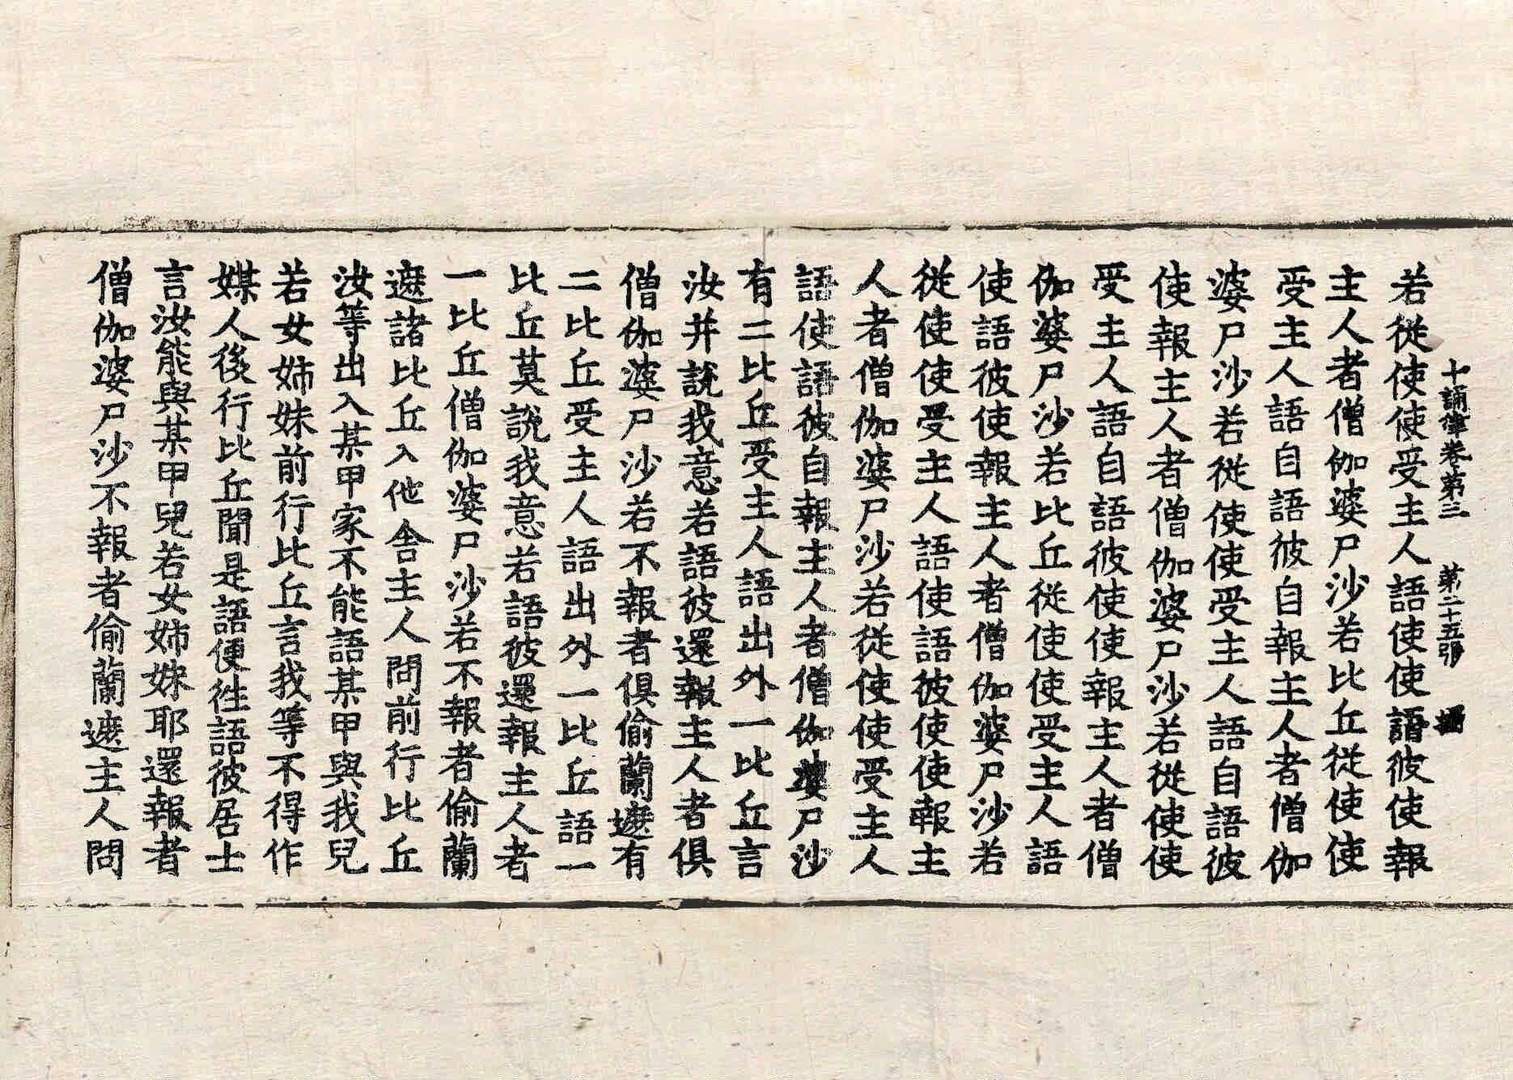 十誦律卷第三 第二十五張 攝
若從使使受主人語使使語彼使報
主人者僧伽婆尸沙若比丘從使使
受主人語自語彼自報主人者僧伽
婆尸沙若從使使受主人語自語彼
使報主人者僧伽婆尸沙若從使使
受主人語自語彼使使報主人者僧
伽婆尸沙若比丘從使使受主人語
使語彼使報主人者僧伽婆尸沙若
從使使受主人語使語彼使使報主
人者僧伽婆尸沙若從使使受主人
語使語彼自報主人者僧伽婆尸沙
有二比丘受主人語出外一比丘言
汝并說我意若語彼還報主人者俱
僧伽婆尸沙若不報者俱偷蘭遮有
二比丘受主人語出外一比丘語一
比丘莫說我意若語彼還報主人者
一比丘僧伽婆尸沙若不報者偷蘭
遮諸比丘入他舍主人問前行比丘
汝等出入某甲家不能語某甲與我兒
若女姊妹前行比丘言我等不得作
媒人後行比丘聞是語便往語彼居士
言汝能與某甲兒若女姊妹耶還報者
僧伽婆尸沙不報者偷蘭遮主人問